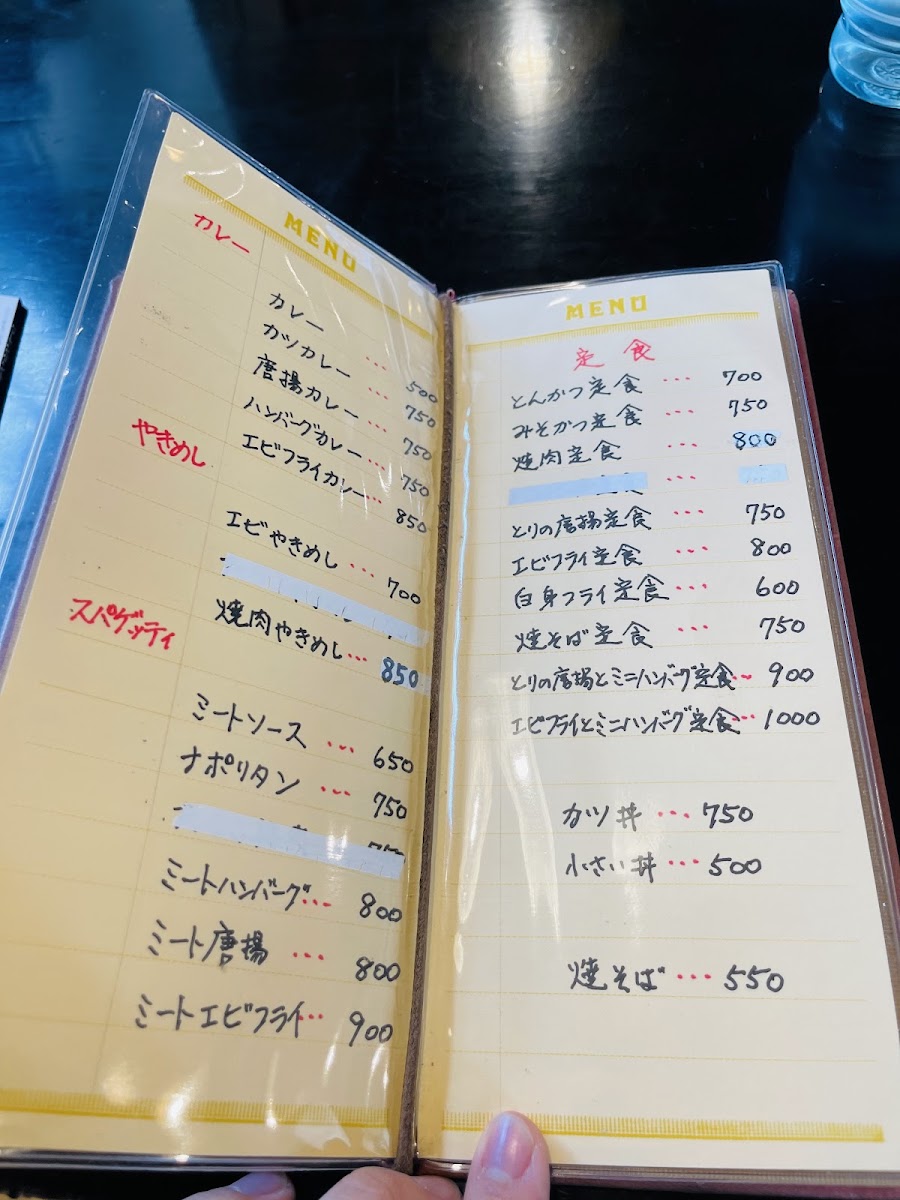 MENU
カレー
カレー ... 500
カツカレー ... 750
唐揚カレー ... 750
ハンバーグカレー... 750
エビフライカレー... 850
やきめし
エビやきめし ... 700
焼肉やきめし... 850
スパゲッティ
ミートソース ... 650
ナポリタン ... 750
ミートハンバーグ... 800
ミート唐揚 ... 800
ミートエビフライ... 900
MENU
定食
とんかつ定食 ... 700
みそかつ定食 ... 750
焼肉定食 ... 800
とりの唐揚定食 ... 750
エビフライ定食 ... 800
白身フライ定食... 600
焼そば定食 ... 750
とりの唐揚とミニハンバーグ定食... 900
エビフライとミニハンバーグ定食... 1000
カツ丼 ... 750
小さい丼 ... 500
焼そば ... 550